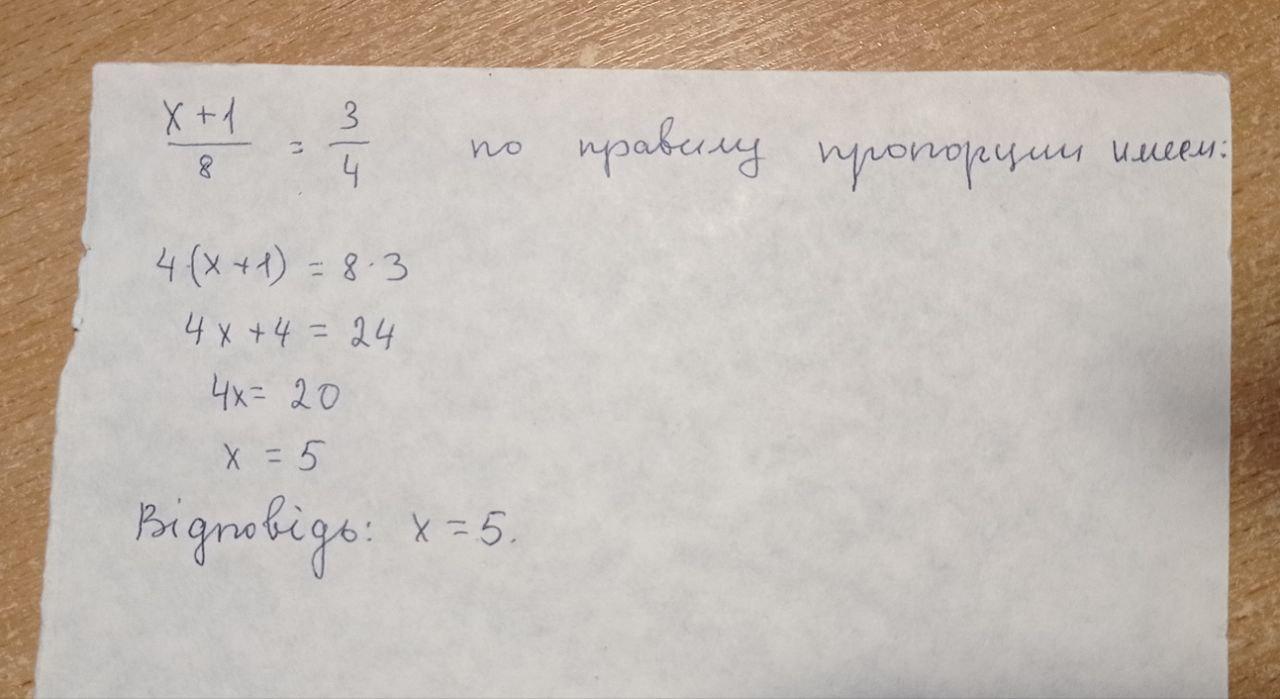 x+1/8 = 3/4 по правилу пропорции имеем:
4·(x+1) = 8·3
4x+4 = 24
4x= 20
x = 5
Відповідь: x = 5.